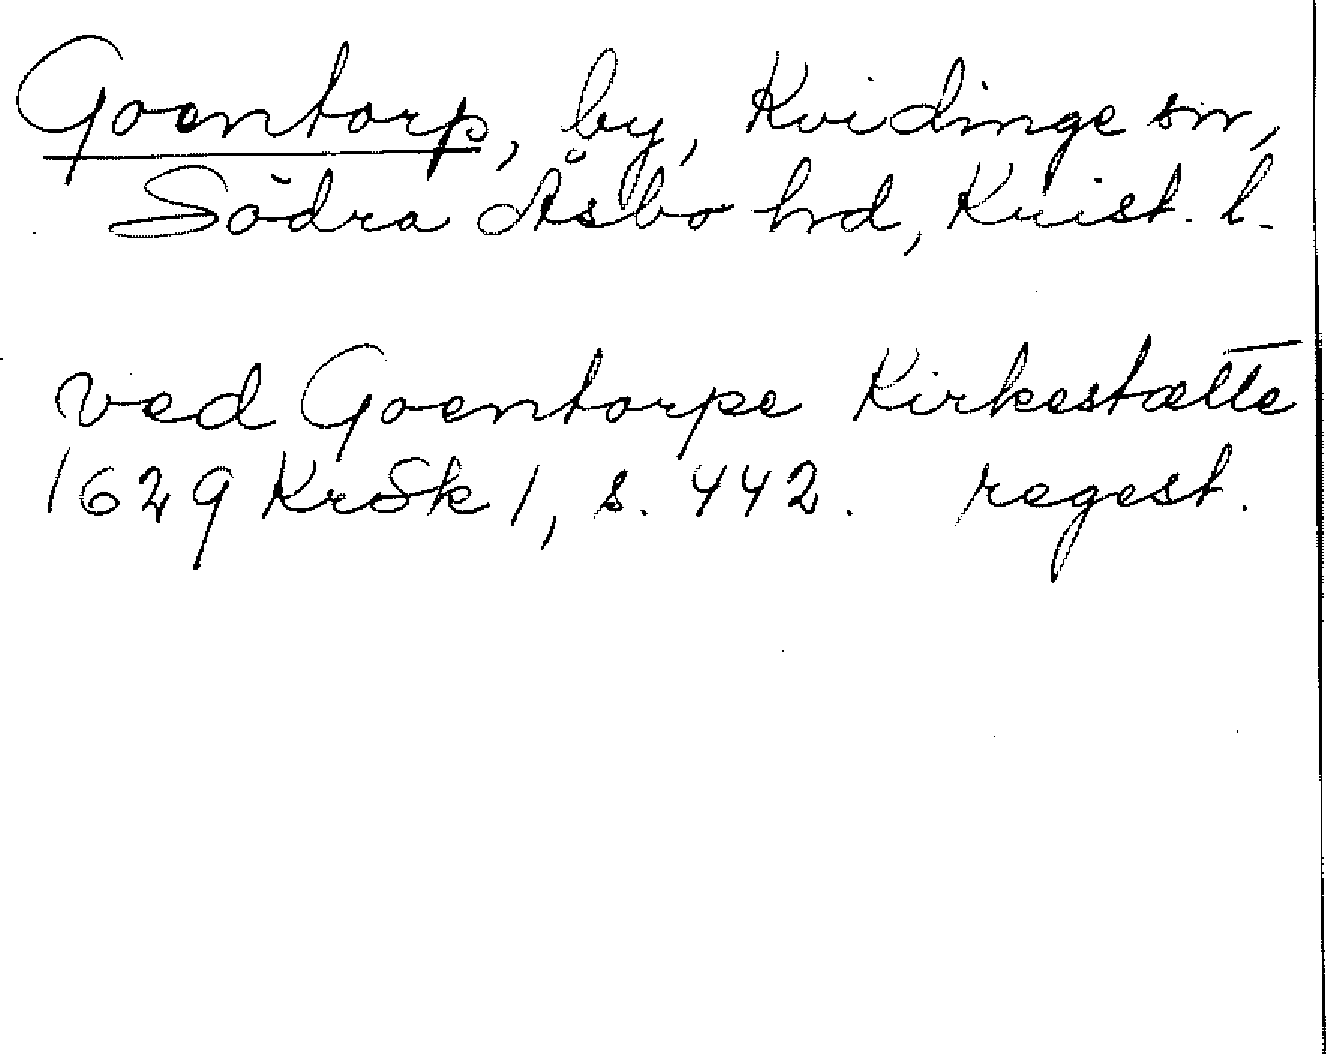 Goentorp, by, Kvidinge sn,
Södra Åsbo hd, Krist. l.
ved Goentorpe Kirkestætte
1629 KrSk 1, s. 442. regest.